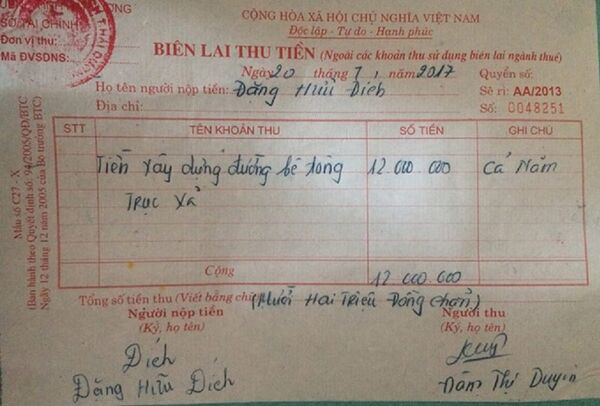 CỘNG HÒA XÃ HỘI CHỦ NGHĨA VIỆT NAM
Độc lập - Tự do - Hạnh phúc
SỞ TÀI CHÍNH
Đơn vị thu:
Mã ĐVSDNS:
BIÊN LAI THU TIỀN (Ngoài các khoản thu sử dụng biên lai ngành thuế)
Ngày 20 tháng 7 năm 2017 Quyển số:
Họ tên người nộp tiền: Đặng Hữu Dích Sê ri: AA/2013
Địa chỉ: Số: 0048251
STT TÊN KHOẢN THU SỐ TIỀN GHI CHÚ
Tiền xây dựng đường bê tông 12.000.000 cả năm
Trục xã
Cộng 12.000.000
Tổng số tiền thu (Viết bằng chữ) (Mười Hai Triệu Đồng chẵn)
Người nộp tiền Người thu
(Ký, họ tên) (Ký, họ tên)
Dích
Đặng Hữu Dích Đàm Thị Duyên
Mẫu số C27 - X
(Ban hành theo Quyết định số: 94/2005/QĐ/BTC
Ngày 12 tháng 12 năm 2005 của Bộ trưởng BTC)